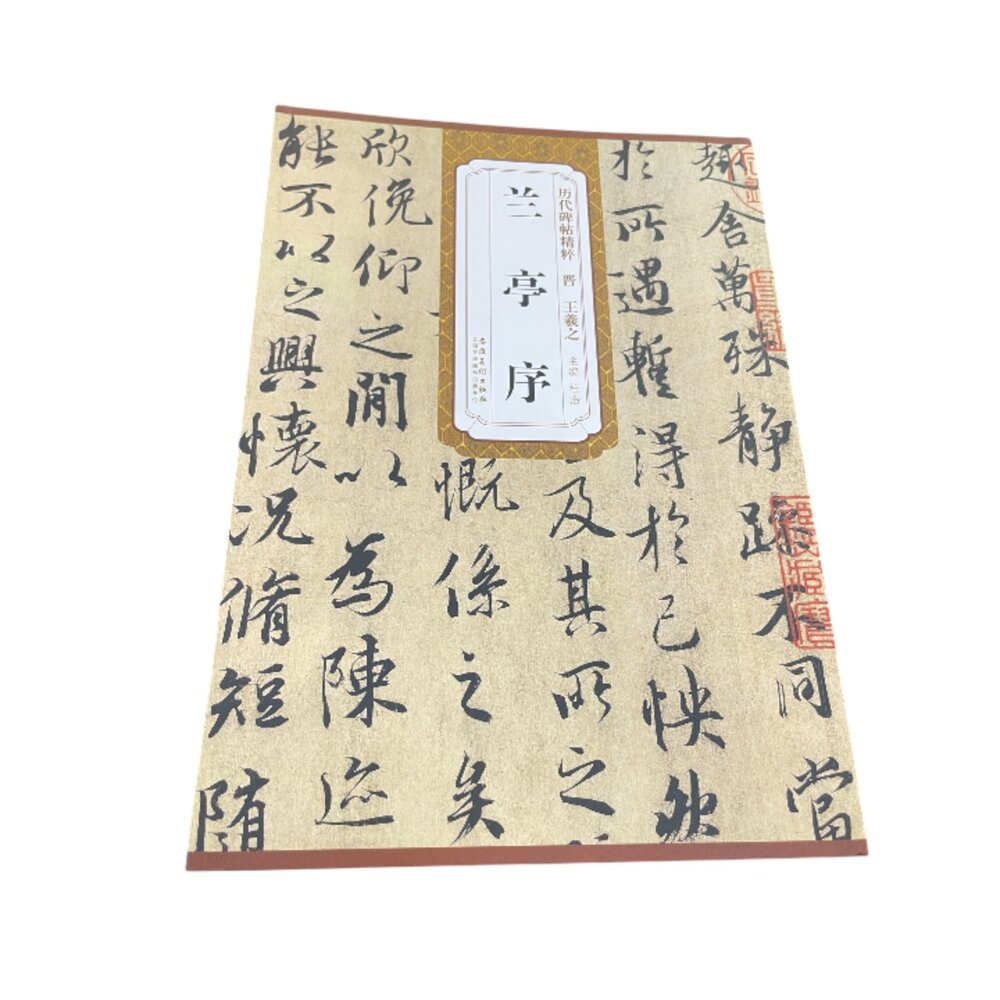 兰亭序
历代碑帖精粹 晋 王羲之 主编
安徽美术出版社
趣舍萬殊静躁不同當
於所遇蹔得於己怏然
及其所之
慨係之矣
欣俛仰之閒以為陳迹
能不以之興懷况脩短随